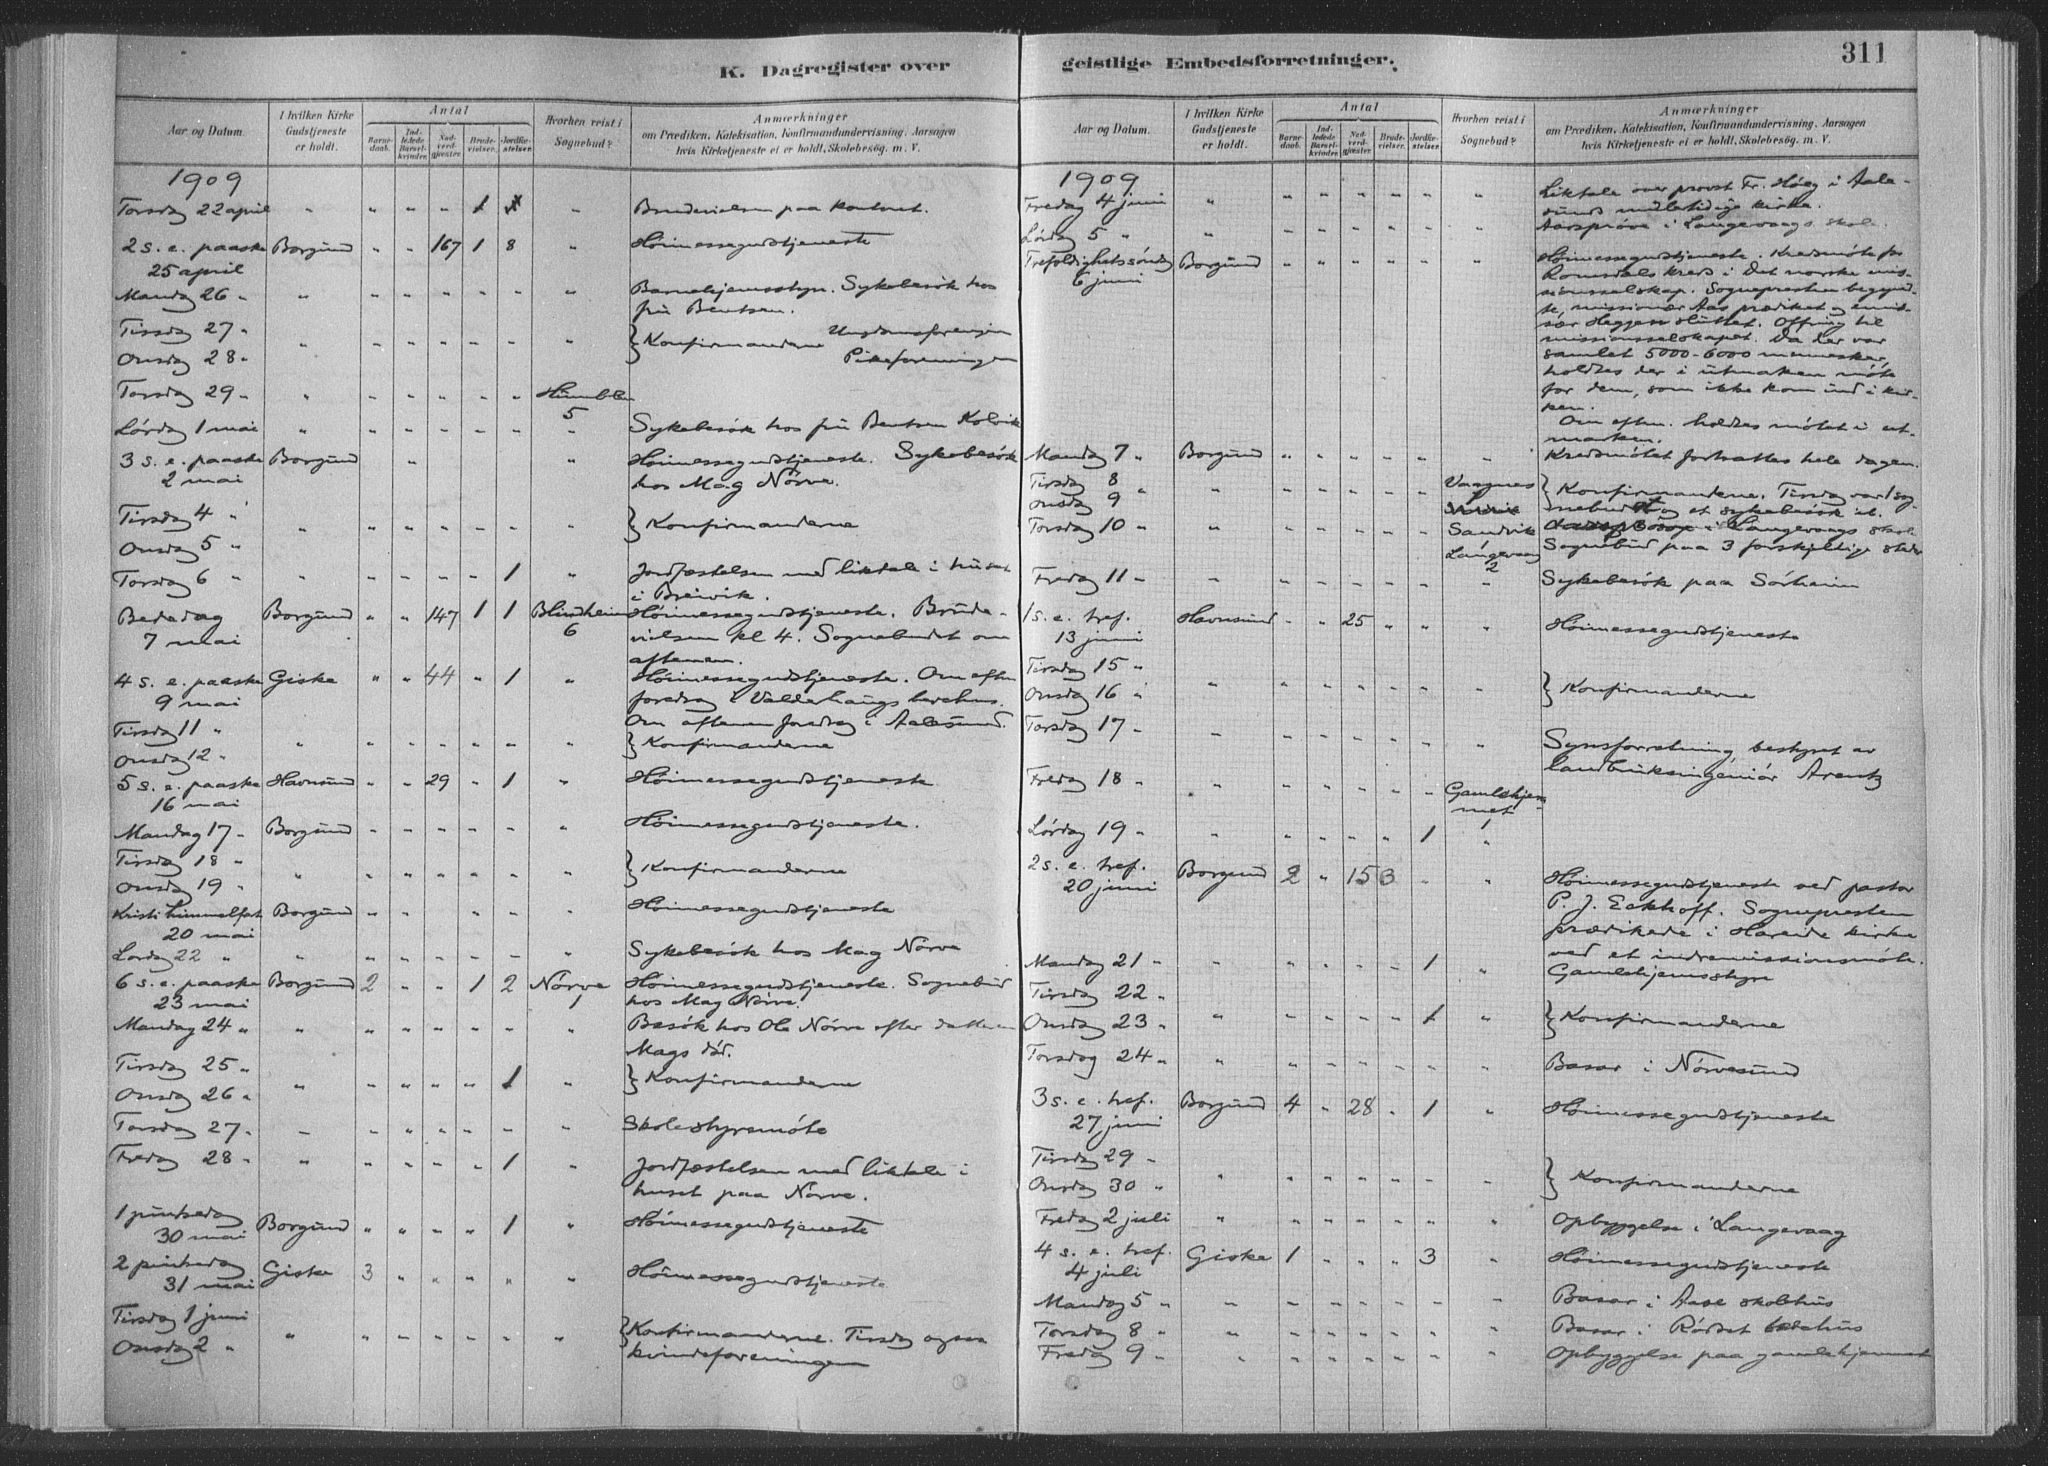 K. Dagregister over
Aar og Datum.
I hvilken Kirke Gudstjeneste er holdt.
Antal
Barnedaab.
Indledede Barselkvinder.
Nadverdgjæster.
Brudevielser.
Jordfæstelser.
Hvorhen reist i Sognebud?
Anmærkninger
om Prædiken, Katekisation, Konfirmandundervisning, Aarsagen
hvis Kirketjeneste ei er holdt, Skolebesøg. m. V.
1909
Torsdag 22 april " " " " 1 " Brudevielsen paa kontoret.
2 s. e. paaske Borgund " " 167 1 8 " Høimessegudstjeneste
25 april
Mandag 26 " " " " " " " " Barnehjemsstyr. Sykebesøk hos
frú Bentsen.
Tirsdag 27 "
" " " } Konfirmanderne Ungdomsforeningen
Onsdag 28 " Pikeforeningen
Torsdag 29 " " " " " " " Humblen
5
Lørdag 1 mai " " " " " " " Sykebesøk hos frú Bentsen Kolvik
3 s. e. paaske Borgund " " Høimessegudstjeneste. Sykebesøk
2 mai hos Mag Nørve.
Tirsdag 4 "
" " " " " " " } Konfirmanderne
Onsdag 5 "
Torsdag 6 " " " " " " 1 " Jordfæstelsen med liktale i huset
i Breivik.
Bededag Borgund " " 147 1 1 Blindheim Høimessegudstjeneste. Brude-
7 mai 6 vielsen kl 4. Sognebudet om
aftenen.
4 s. e. paaske Giske " " 44 " 1 " Høimessegudstjeneste. Om efterm
9 mai foredrag i Valderhaugs bedehus.
Om aftenen foredrag i Aalesund.
Tirsdag 11 "
" " " " " " " } Konfirmanderne
Onsdag 12 "
5 s. e. paaske Havnsund " " 29 " 1 " Høimessegudstjeneste
16 mai
Mandag 17 " Borgund " " " " " " Høimessegudstjeneste.
Tirsdag 18 "
" " " " " " " } Konfirmanderne
Onsdag 19 "
Kristi himmelfart Borgund " " Høimessegudstjeneste
20 mai
Lørdag 22 " " " " " " " " Sykebesøk hos Mag Nørve
6 s. e. paaske Borgund 2 " " 1 2 Nørve Høimessegudstjeneste. Sognebud
23 mai 1 hos Mag Nørve.
Mandag 24 " " " " " " " " Besøk hos Ole Nørve efter datteren
Mags død.
Tirsdag 25 "
" " " " " 1 " } Konfirmanderne
Onsdag 26 "
Torsdag 27 " " " " " " " " Skolestyrsmøte
Fredag 28 " " " " " " 1 " Jordfæstelsen med liktale i
huset paa Nørve.
1 pintsedag
30 mai Borgund " " " " 1 " Høimessegudstjeneste
2 pintsedag
31 mai Giske 3 " " " " " Høimessegudstjeneste
Tirsdag 1 juni
" " " " " " " } Konfirmanderne. Tirsdag ogsaa
Onsdag 2 " kvindeforeningen
geistlige Embedsforretninger.
311
Aar og Datum.
I hvilken Kirke Gudstjeneste er holdt.
Antal
Barnedaab.
Indledede Barselkvinder.
Nadverdgjæster.
Brudevielser.
Jordfæstelser.
Hvorhen reist i Sognebud?
Anmærkninger
om Prædiken, Katekisation, Konfirmandundervisning, Aarsagen
hvis Kirketjeneste ei er holdt, Skolebesøg. m. V.
1909
Fredag 4 juni " " " " " " " Liktale over provst Fr. Høeg i Aale-
sunds midlertidige kirke.
Lørdag 5 " " " " " " " " Aarsprøve i Langevaags skole
Trefoldighetssøndag Borgund " " " " " " Høimessegudstjeneste. Kredsmøte for
6 juni Romsdals kreds i Det norske mis-
sionsselskap. Sognepresten begynd-
te, missionær Aas prædiket og emis-
sær Heggen sluttet. Offring til
missionsselskapet. Da der var
samlet 5000-6000 mennesker,
holdtes der i utmarken møte
for dem, som ikke kom ind i kir-
ken.
Om efterm. holdtes møtet i ut-
marken.
Mandag 7 " Borgund " " " " " " Kredsmøtet fortsattes hele dagen.
Tirsdag 8 Vaagnes } Konfirmanderne. Tirsdag var 1 sog-
Onsdag 9 " " 1 nebud og et sykebesøk
Torsdag 10 " " " " " " " Sandvik i Langevaags skole
1
Langevaag Sognebud paa 3 forskjellige steder
2
Fredag 11 " " " " " " " " Sykebesøk paa Sørheim
1 s. e. tref. Havnsund " " 25 " " " Høimessegudstjeneste
13 juni
Tirsdag 15 "
" " " " " " " } Konfirmanderne
Onsdag 16 "
Torsdag 17 " " " " " " " " Synsforretning bestyret av
landbruksingeniør Arentz
Fredag 18 " " " " " " " Gamlehjem-
met
1
Lørdag 19 " " " " " " 1 "
2 s. e. tref. Borgund 2 " 15 3 " " Høimessegudstjeneste ved pastor
20 juni P. J. Eckhoff. Sognepresten
prædikede i Hareide kirke
ved et indremissionsmøte.
Mandag 21 " 1 " Gamlehjemsstyre
Tirsdag 22 "
" " " " " 1 " } Konfirmanderne
Onsdag 23 "
Torsdag 24 " " " " " " " " Basar i Nørvesund
3 s. e. tref. Borgund 4 " 28 " 1 " Høimessegudstjeneste
27 juni
Tirsdag 29 "
" " " " " " " } Konfirmanderne
Onsdag 30 "
Fredag 2 juli " " " " " " " Opbyggelse i Langevaag
4 s. e. tref. Giske 1 " " " 3 " Høimessegudstjeneste
4 juli
Mandag 5 " " " " " " " " Basar i Aase skolehus
Torsdag 8 " " " " " " " " Basar i Rødset bedehus
Fredag 9 " " " " " " " " Opbyggelse paa gamlehjemmet